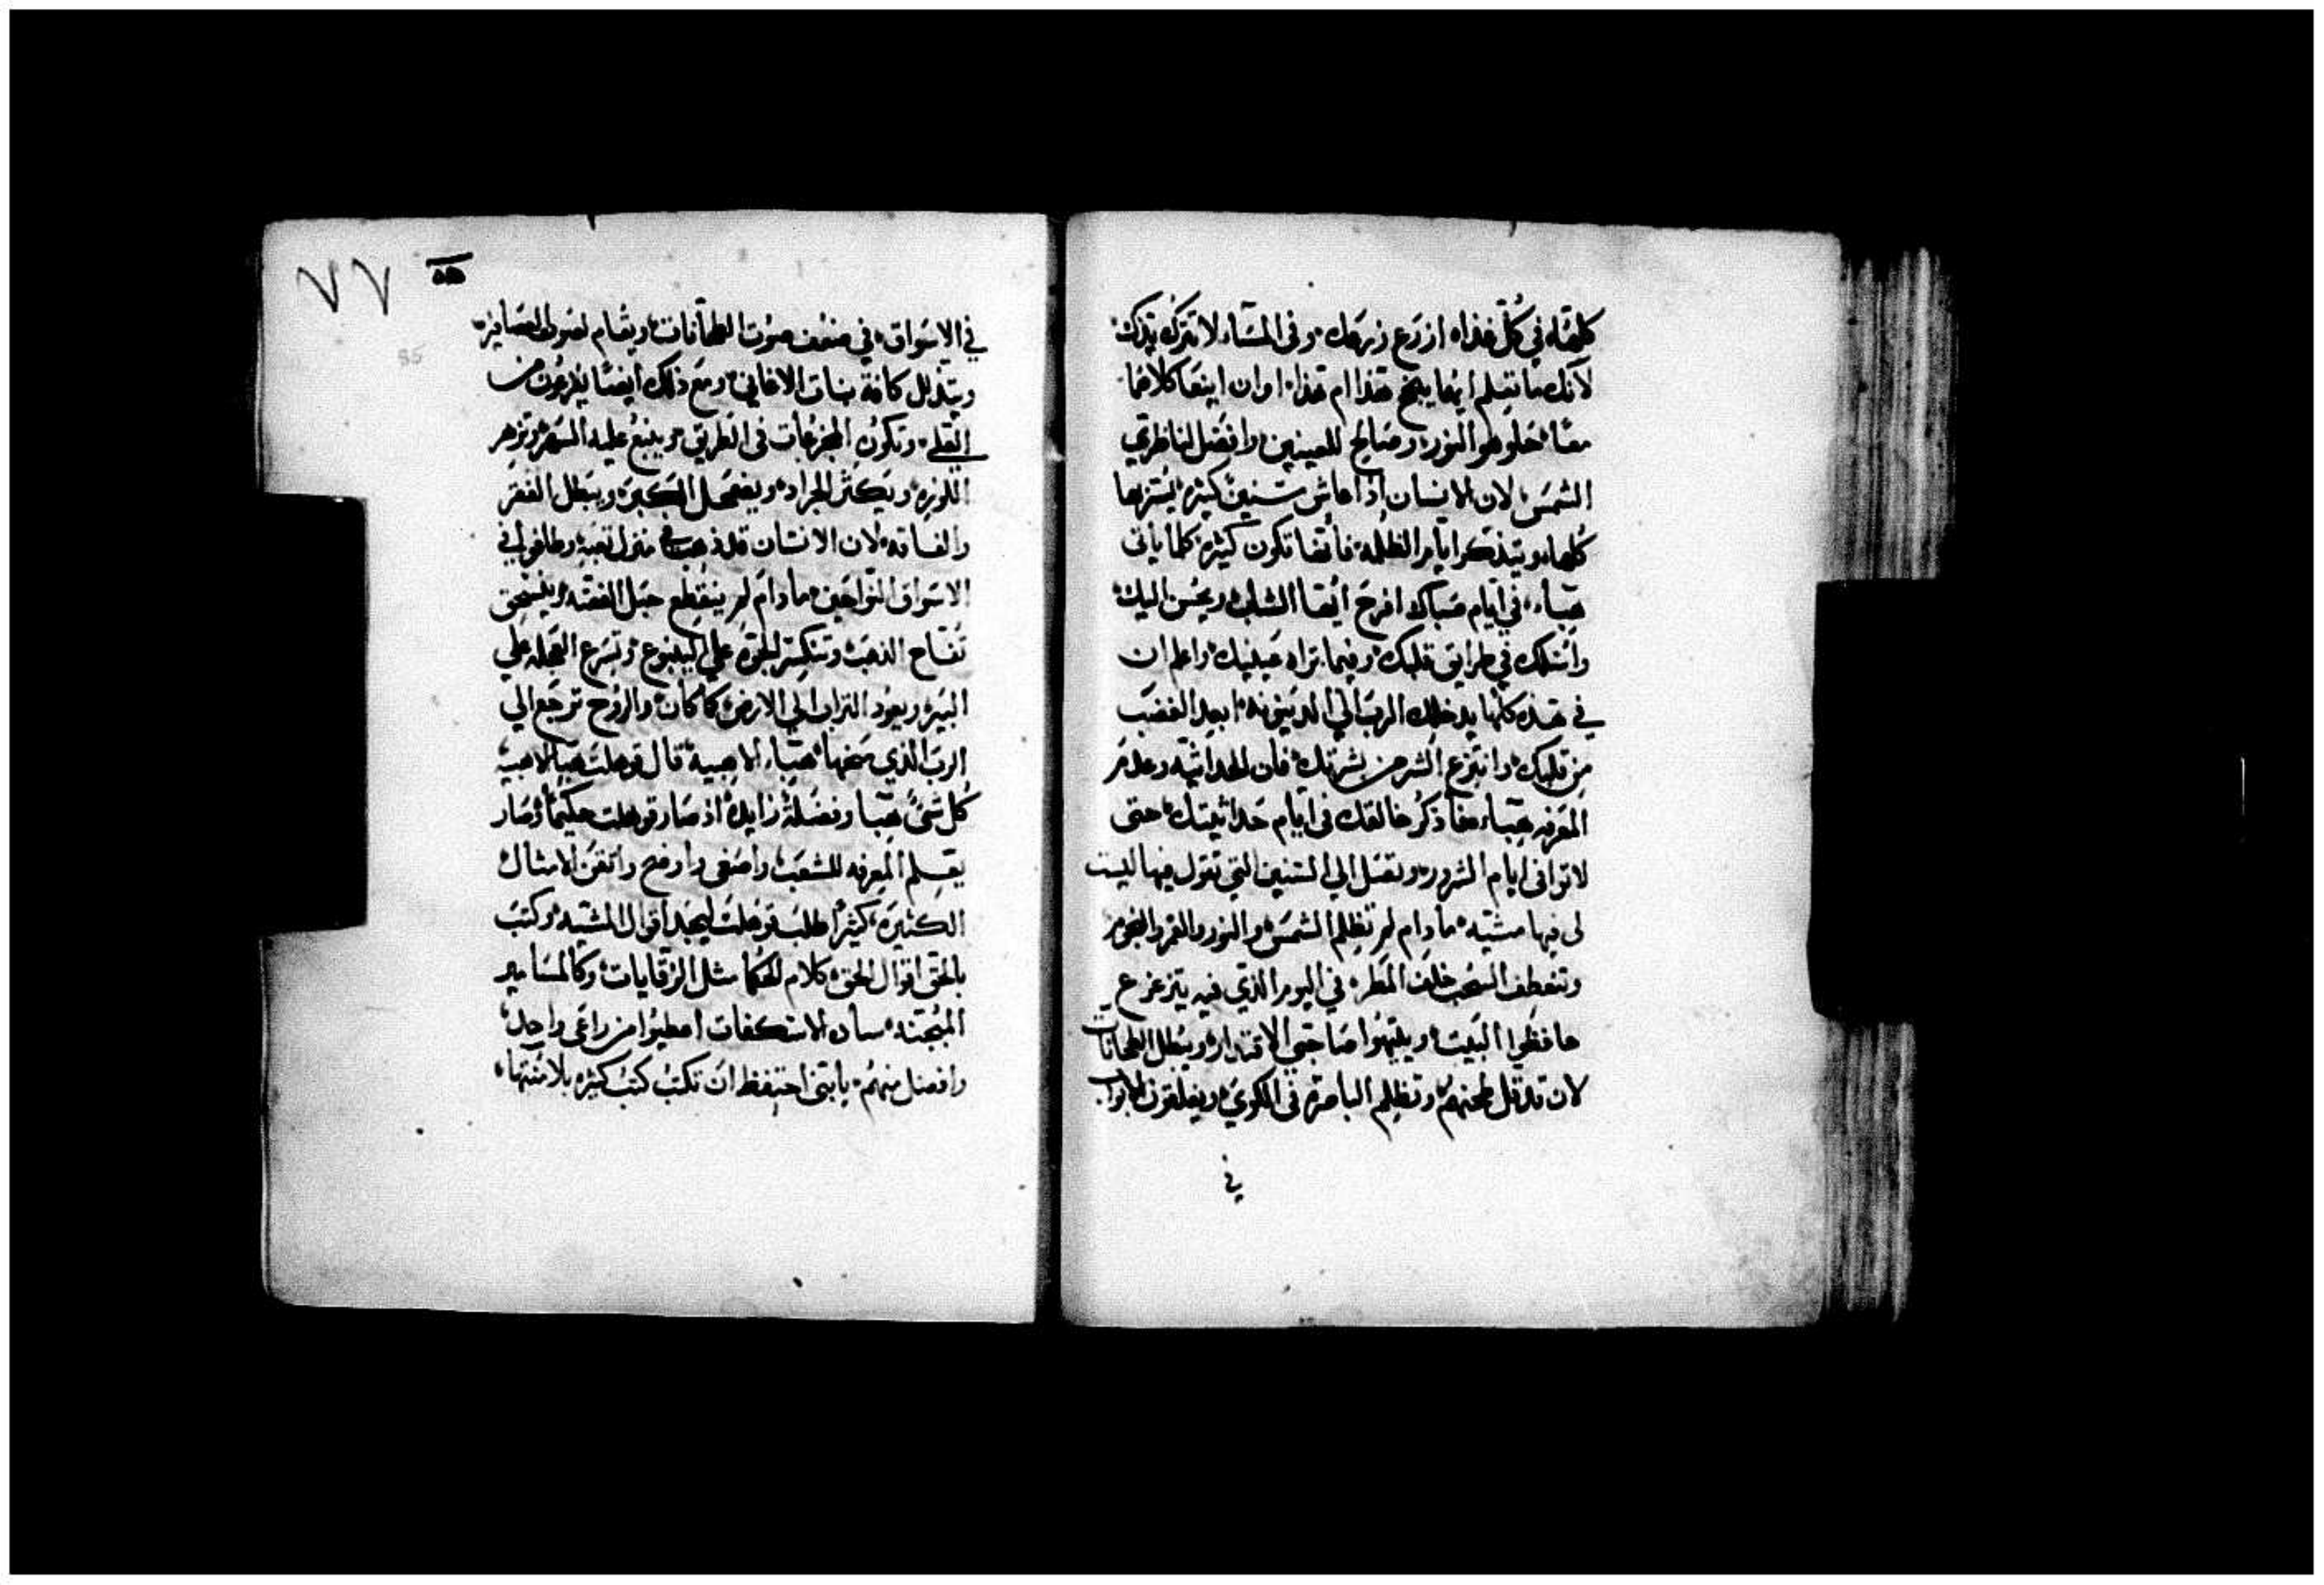 كلهما في كل غداه ازرع زرعك وفي المساء لا تترك يدك
لانك ما تعلم ايما ينجح هذا ام هذا او ان اينعا كلاهما
معًا حلو هو النور وصالح للعينين وافضل لناظري
الشمس لان الانسان اذا عاش سنين كثيره يسر بها
كلها ويتذكر ايام الظلمه فانها تكون كثيره كلما ياتى
هباء في ايام صباك افرح ايها الشاب ويحسن اليك
واسلك في طرايق قلبك وفيما تراه عينيك واعلم ان
في هذه كلها يدخلك الرب الي الدينونه ابعد الغضب
من قلبك وانتزع الشر من بشرتك فان الحداثيه وعدم
المعرفه هباء فاذكر خالقك في ايام حداثيتك حتى
لا توافى ايام الشرور وتصل الي السنين التي تقول فيها ليست
لى فيها مشيه ما دام لم تظلم الشمس والنور والقمر والنجوم
وتنعطف السحب خلف المطر في اليوم الذي فيه يتزعزع
حافظوا البيت ويلتهوا صاحبي الاقتدار ويبطل الطحانات
لان قد قل طحنهم وتظلم الباصره في الكوي ويغلقون الابواب
في
٧٧
85
في الاسواق في ضعف صوت الطحانات ويقام لصوت العصافير
ويتذلل كافة بنات الاغاني ومع ذلك ايضا يفزعون من
العلي وتكون المجزعات فى الطريق وينبع عليه السهر وتزهر
اللوزه ويكثر الجراد ويضمحل الكبر ويبطل الفقر
والفاقه لان الانسان قد ذهب في منزل تعبه وطافوا في
الاسواق النواحين ما دام لم ينقطع حبل الفضه وينسحق
تفاح الذهب وتنكسر الجره علي الينبوع وتسرع العجله علي
البير ويعود التراب الي الارض كما كان والروح ترجع الي
الرب الذي منحها هباء الاهبيه قال قوهلت هبا الاهبيه
كل شئ هبا وفضلة زايده اذ صار قوهلت حكيما وصار
يعلم المعرفه للشعب واصغى واوضح واتقن الامثال
الكثيره كثيرا طلب قوهلت ليجد اقوال المشيه وكتب
بالحق اقوال الحق كلام الحكما مثل الرقايات وكالمسامير
المبحته ساده الاستكفات اعطيوا من راعى واحد
وافضل منهم يابني احتفظ ان تكتب كتب كثيره بلا منتهاء